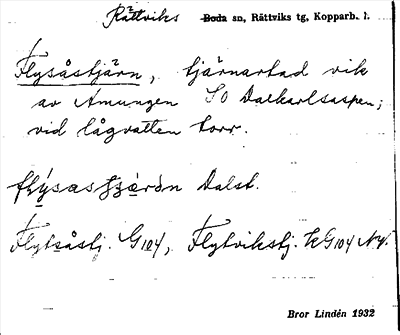 Rättviks Boda sn, Rättviks tg, Kopparb. l.
Flysåstjärn, tjärnartad vik
av Amungen SO Dalkarlsaspen;
vid lågvatten torr.
Dalst.
Flytsåstj. G104, Flytvikstj. kG104 Ny.
Bror Lindén 1932